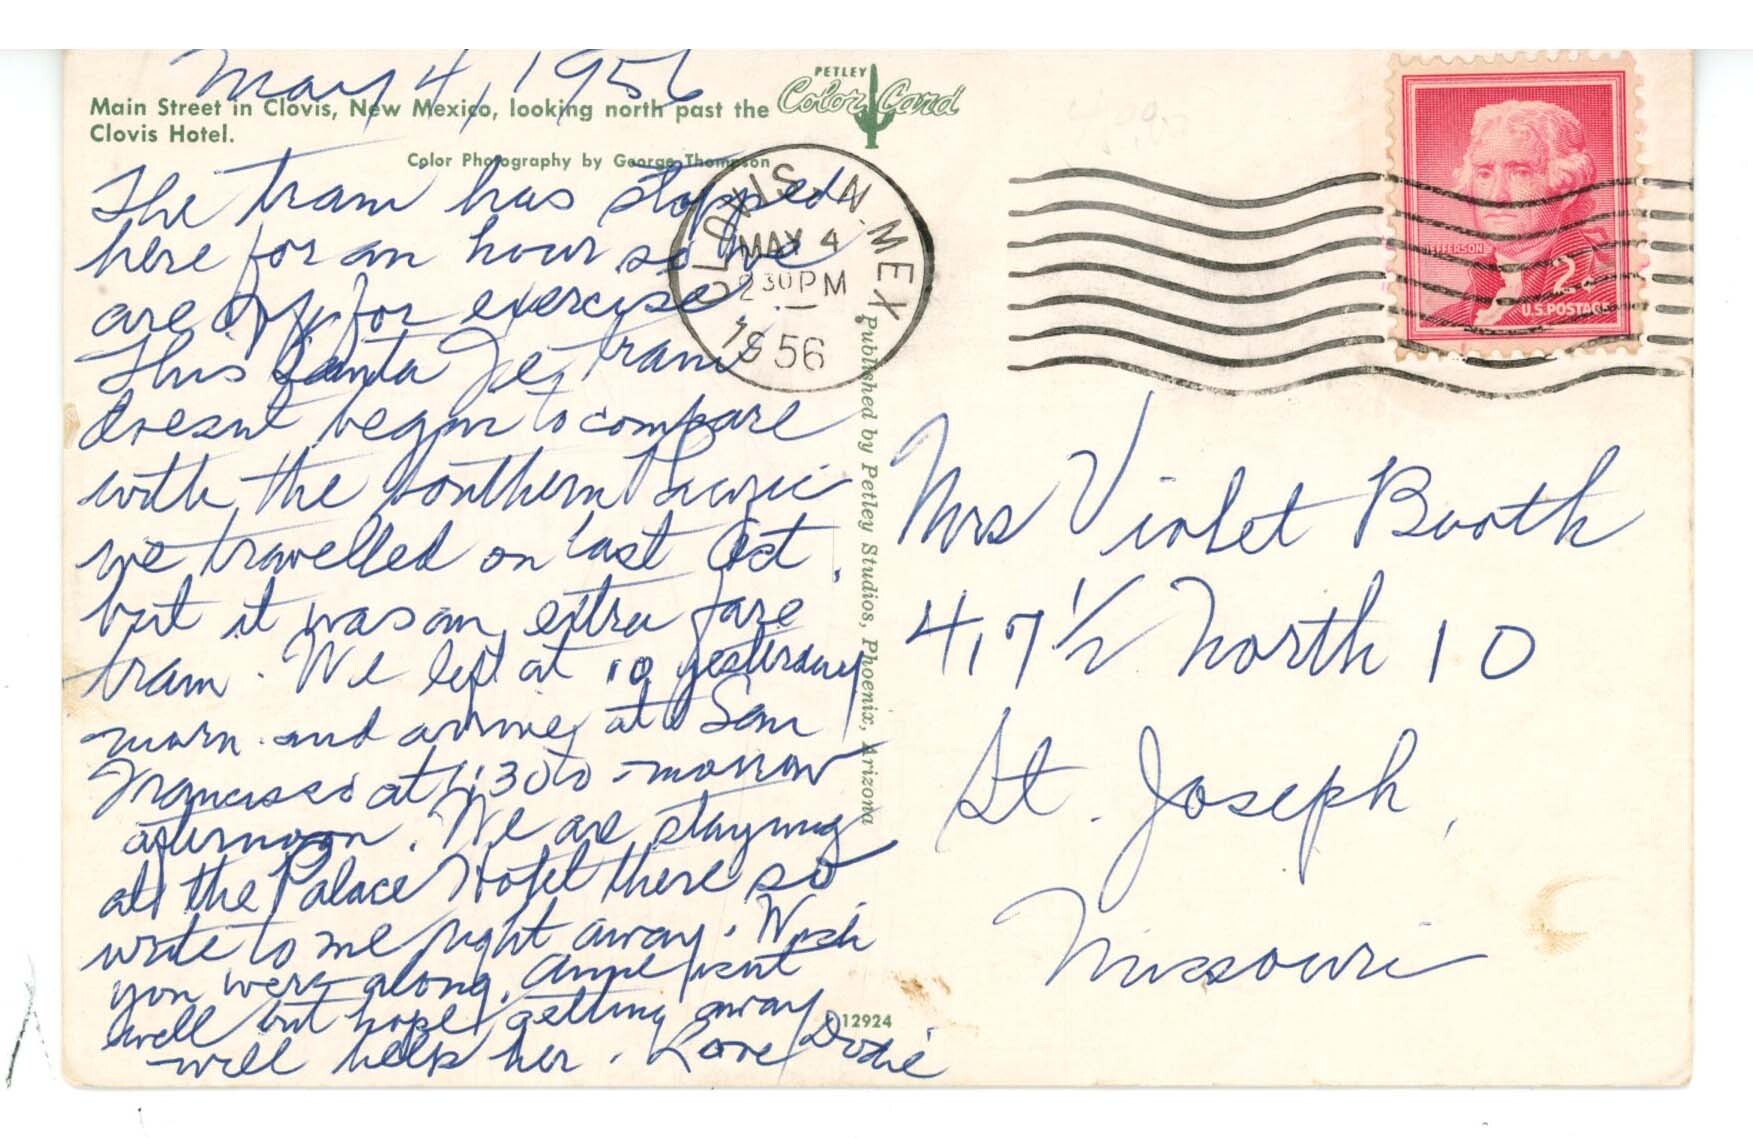 May 4, 1956
PETLEY
Color Card
Main Street in Clovis, New Mexico, looking north past the
Clovis Hotel.
Color Photography by George Thompson
The train has stopped
here for an hour so we
are off for exercise
This Santa Fe train
doesnt began to compare
with the Southern Pacific
we travelled on last Oct.
but it was an extra fare
train. We left at 10 yesterday
morn. and arrive at San
Francisco at 1:30 to-morrow
afternoon. We are staying
at the Palace Hotel there so
write to me right away. Wish
you were along. Anne isnt
well but hope getting away
will help her. Love Dodie
CLOVIS N. MEX
MAY 4
2 30 PM
1956
JEFFERSON
2¢
U.S. POSTAGE
Published by Petley Studios, Phoenix, Arizona
Mrs Violet Booth
417 1/2 North 10
St. Joseph,
Missouri
12924